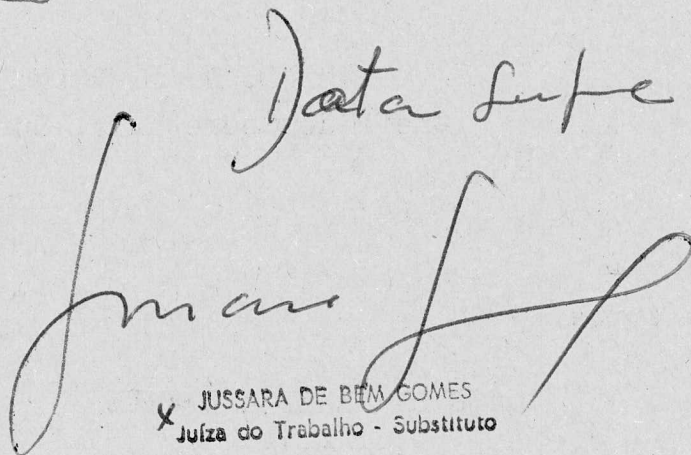 Data supra
JUSSARA DE BEM GOMES
x Juíza do Trabalho - Substituto